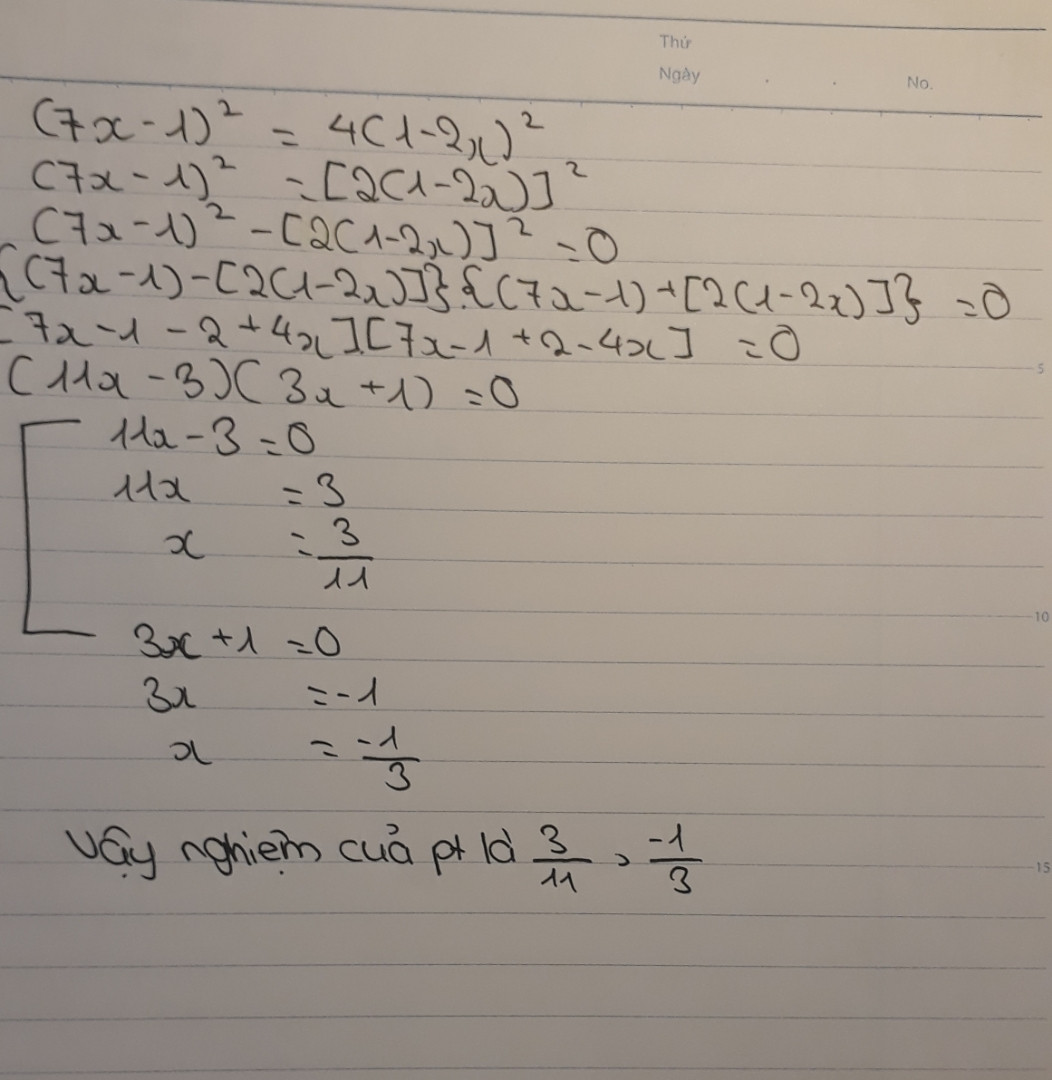 Thứ
Ngày . . No.
(7x - 1)² = 4(1-2x)²
(7x - 1)² = [2(1-2x)]²
(7x - 1)² - [2(1-2x)]² = 0
{(7x - 1) - [2(1-2x)]}.{(7x - 1) + [2(1-2x)]} = 0
[7x - 1 - 2 + 4x].[7x - 1 + 2 - 4x] = 0
5
(11x - 3)(3x + 1) = 0
11x - 3 = 0
11x = 3
x = 3/11
10
3x + 1 = 0
3x = -1
x = -1/3
Vậy nghiệm của pt là 3/11 , -1/3
15